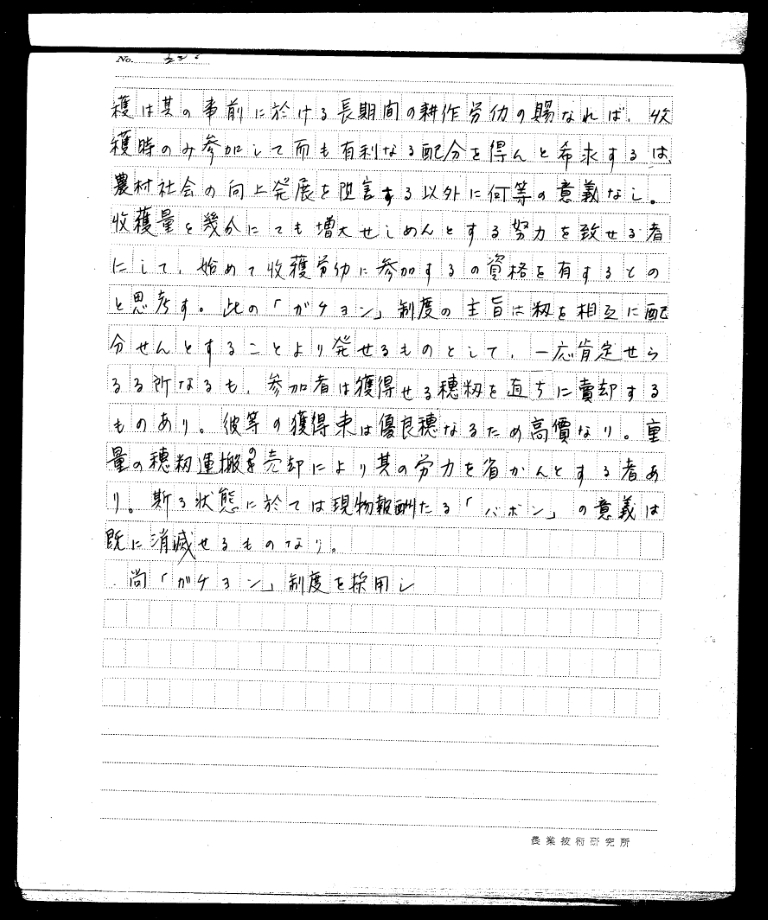 No.
穫は其の事前に於ける長期間の耕作労働の賜なれば、収
穫時のみ参加して而も有利なる配分を得んと希求するは
農村社会の向上発展を阻害する以外に何等の意義なし。
収穫量を幾分にても増大せしめんとする努力を致せる者
にして、始めて収穫労働に参加するの資格を有するもの
と思考す。此の「ガチョン」制度の主旨は籾を相互に配
分せんとすることより発せるものとして、一応肯定せら
るる所なるも、参加者は獲得せる穂籾を直ちに賣却する
ものあり。彼等の獲得束は優良穂なるため高價なり。重
量の穂籾運搬を売却により其の労力を省かんとする者あ
り。斯る状態に於ては現物報酬たる「バボン」の意義は
既に消滅せるものなり。
尚「ガチョン」制度を採用し
農業技術研究所